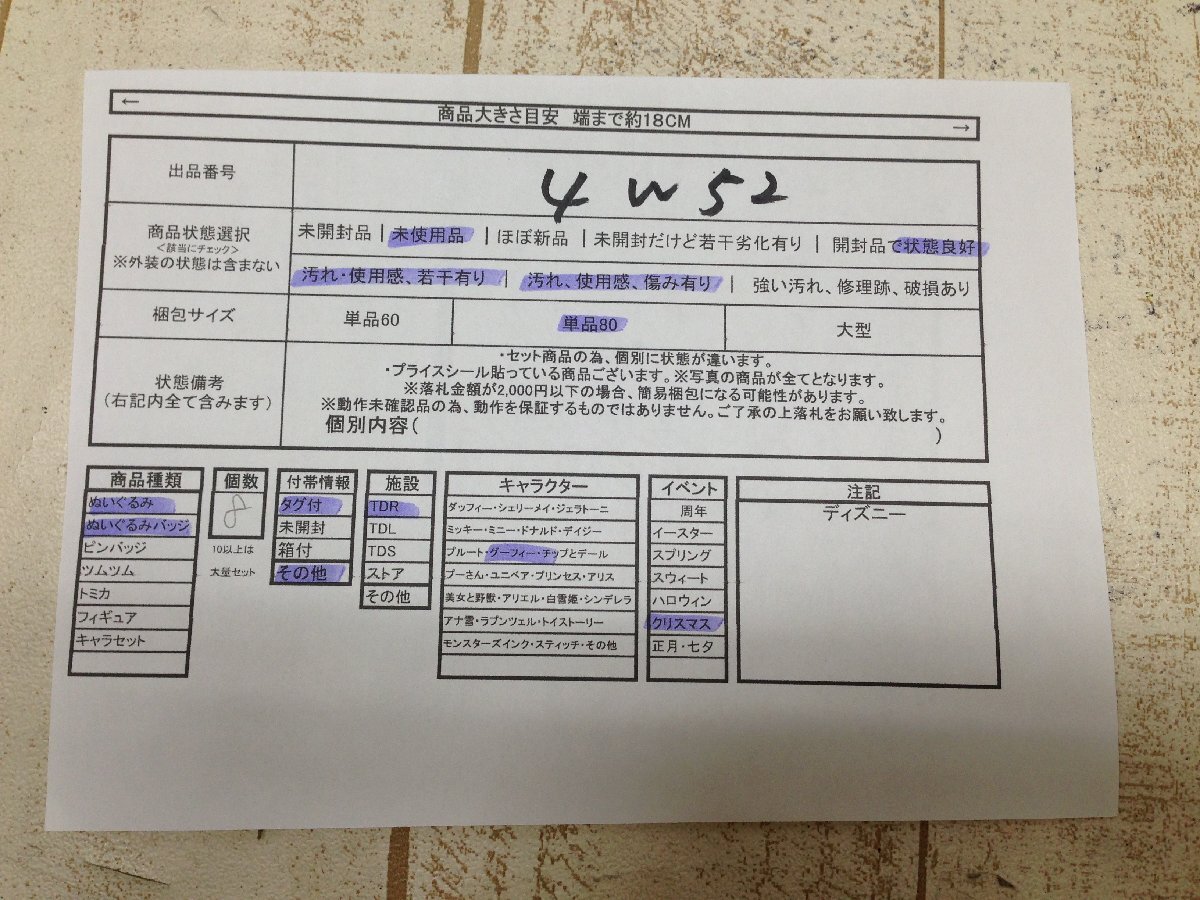 ← 商品大きさ目安 端まで約18CM →
出品番号 4W52
商品状態選択
<該当にチェック>
※外装の状態は含まない
未開封品 | 未使用品 | ほぼ新品 | 未開封だけど若干劣化有り | 開封品で状態良好
汚れ・使用感、若干有り | 汚れ、使用感、傷み有り | 強い汚れ、修理跡、破損あり
梱包サイズ 単品60 単品80 大型
状態備考
(右記内全て含みます)
・セット商品の為、個別に状態が違います。
・プライスシール貼っている商品ございます。※写真の商品が全てとなります。
※落札金額が2,000円以下の場合、簡易梱包になる可能性があります。
※動作未確認品の為、動作を保証するものではありません。ご了承の上落札をお願い致します。
個別内容( )
商品種類
ぬいぐるみ
ぬいぐるみバッジ
ピンバッジ
ツムツム
トミカ
フィギュア
キャラセット
個数
8
10以上は
大量セット
付帯情報
タグ付
未開封
箱付
その他
施設
TDR
TDL
TDS
ストア
その他
キャラクター
ダッフィー・シェリーメイ・ジェラトーニ
ミッキー・ミニー・ドナルド・デイジー
プルート・グーフィー・チップとデール
プーさん・ユニベア・プリンセス・アリス
美女と野獣・アリエル・白雪姫・シンデレラ
アナ雪・ラプンツェル・トイストーリー
モンスターズインク・スティッチ・その他
イベント
周年
イースター
スプリング
スウィート
ハロウィン
クリスマス
正月・七夕
注記
ディズニー